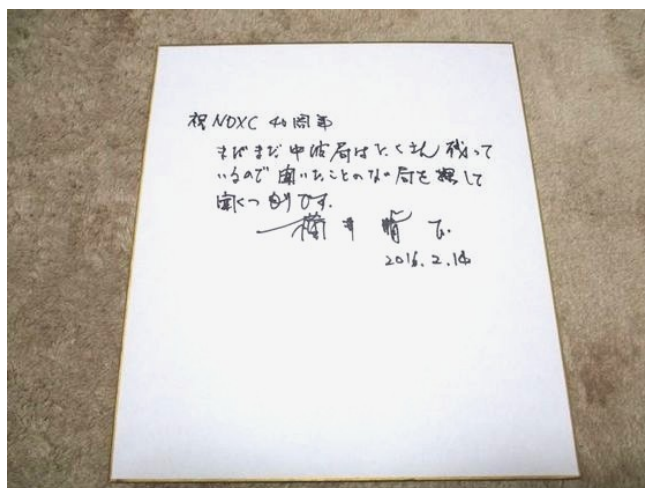 祝 NDXC 40周年
まだまだ中波局はたくさん残って
いるので聞いたことのない局を探して
聞くつもりです.
井
2016.2.14